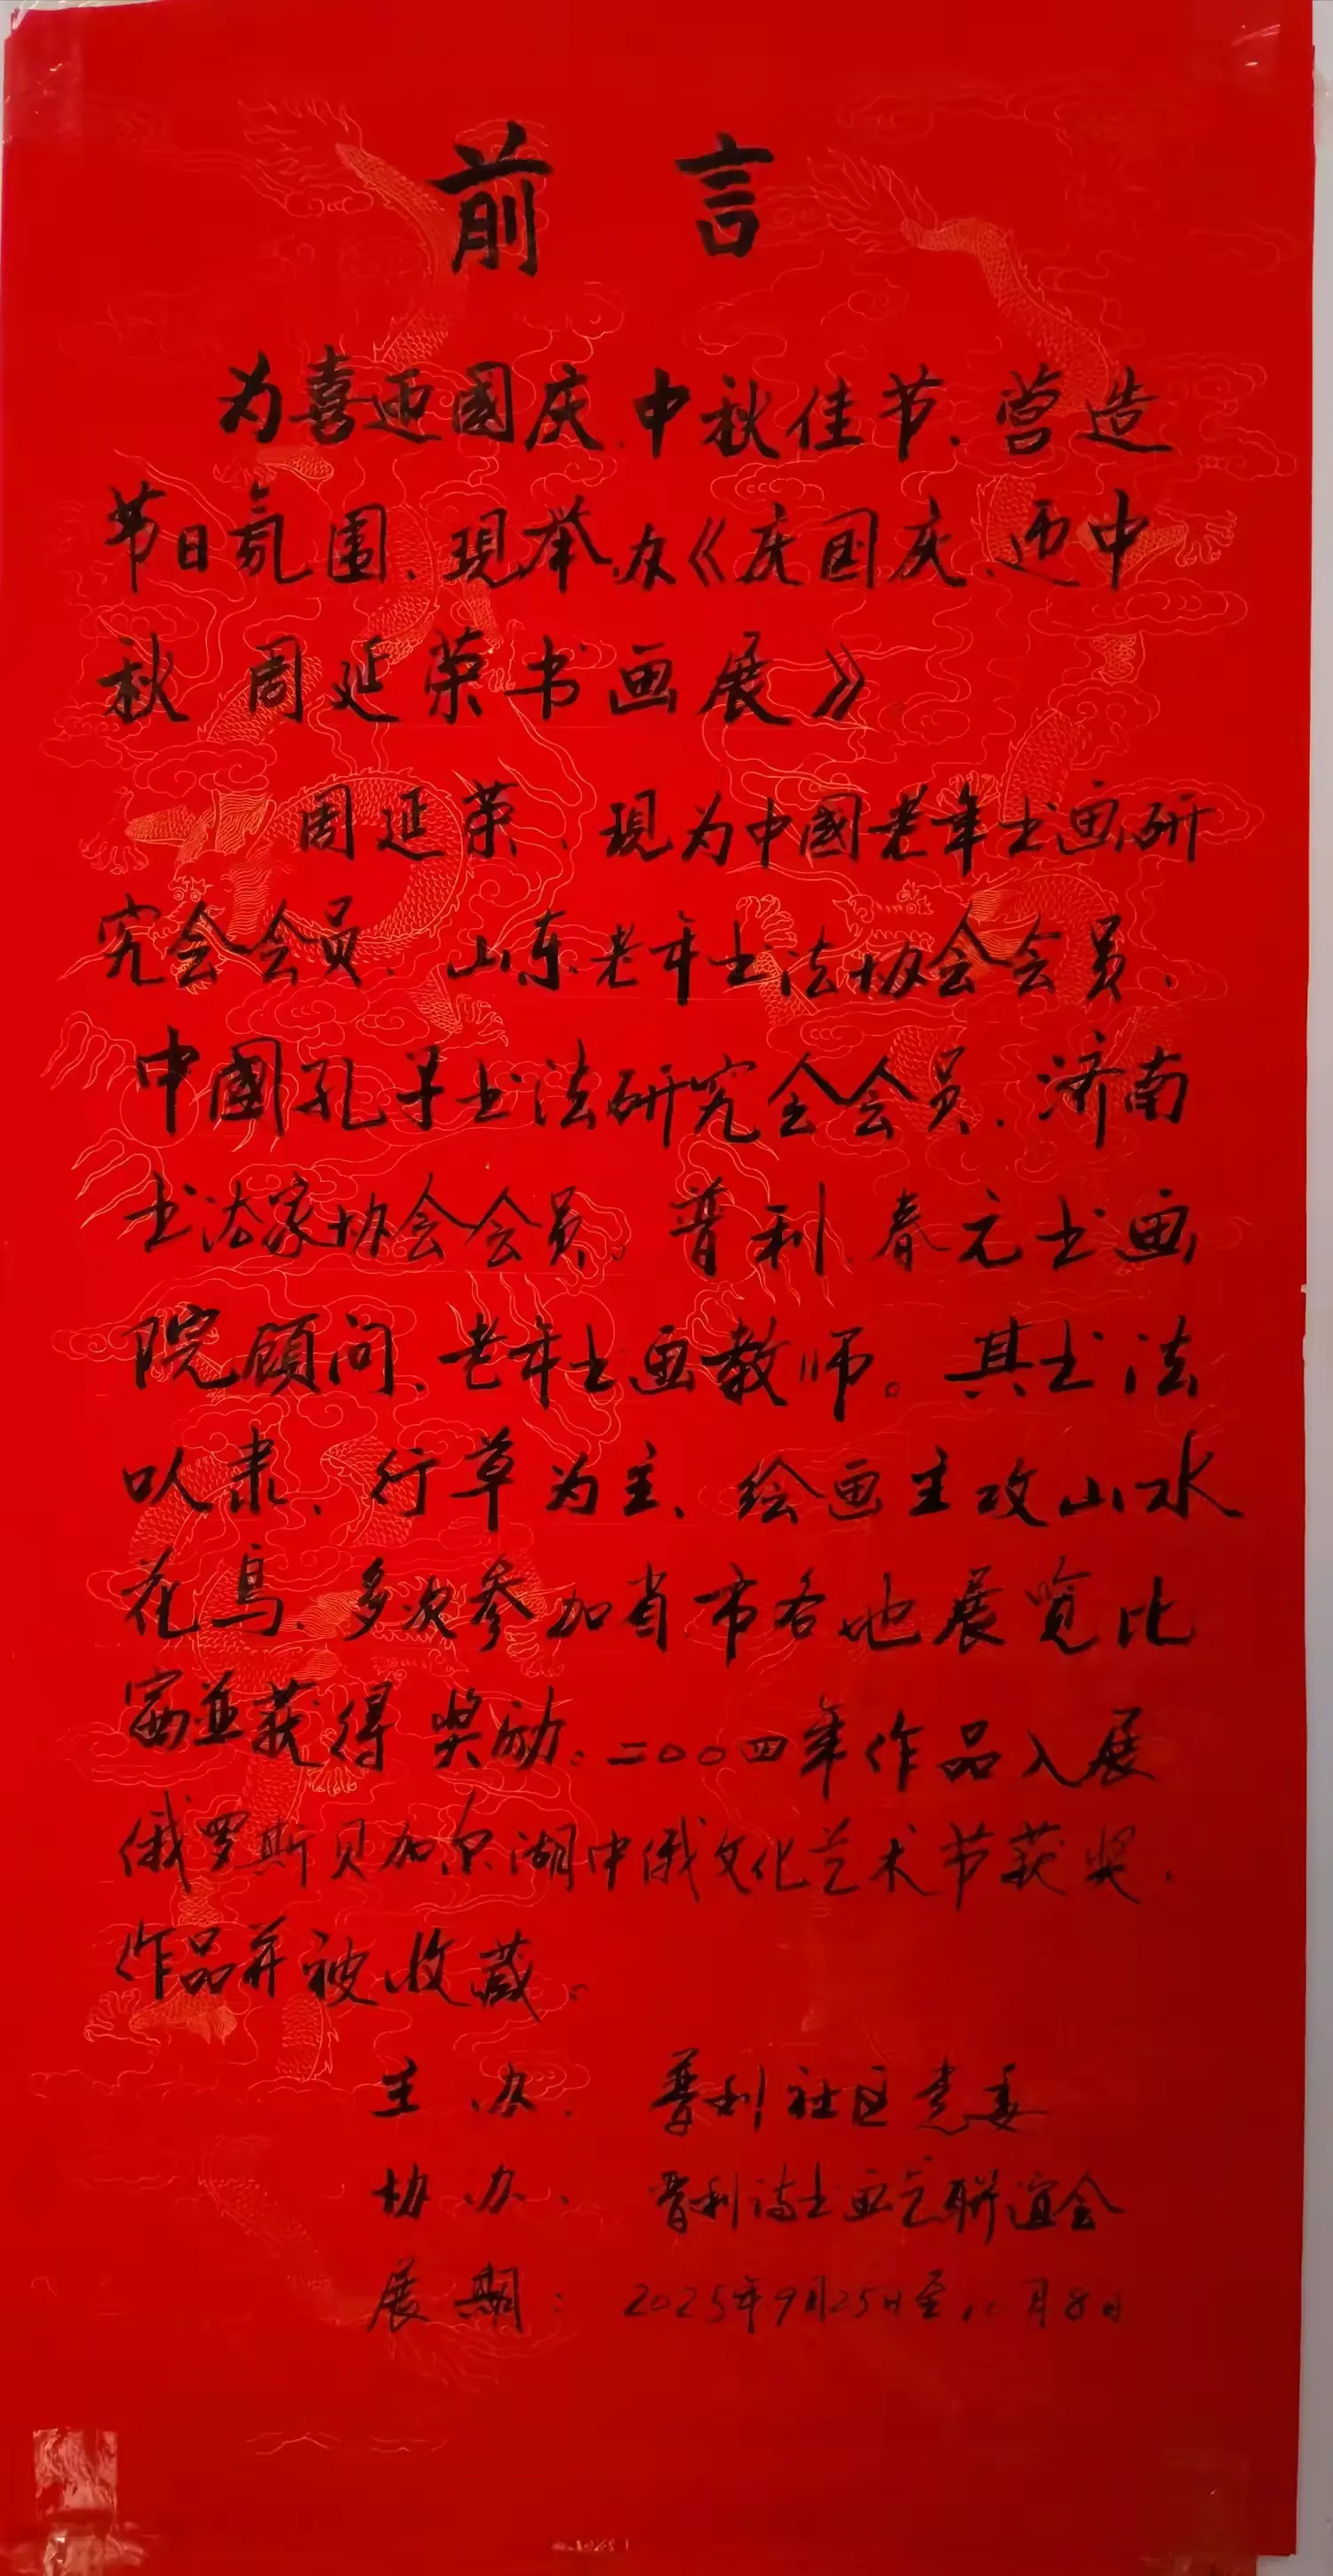 前言
为喜迎國庆、中秋佳节、营造
节日氛围、現举办《庆国庆、迎中
秋 周延荣书画展》
周延荣、現为中國老年书画研
究会会员、山东老年书法协会会员、
中國孔子书法研究会会员、济南
书法家协会会员。普利、春元书画
院顾问、老年书画教师。其书法
以隶、行草为主、绘画主攻山水
花鸟、多次参加省市各地展览比
赛並获得奖励。二〇〇四年作品入展
俄罗斯贝加尔湖中俄文化艺术节获奖、
作品并被收藏。
主办: 普利社区党委
协办: 普利诗书画艺联谊会
展期: 2025年9月25日至10月8日